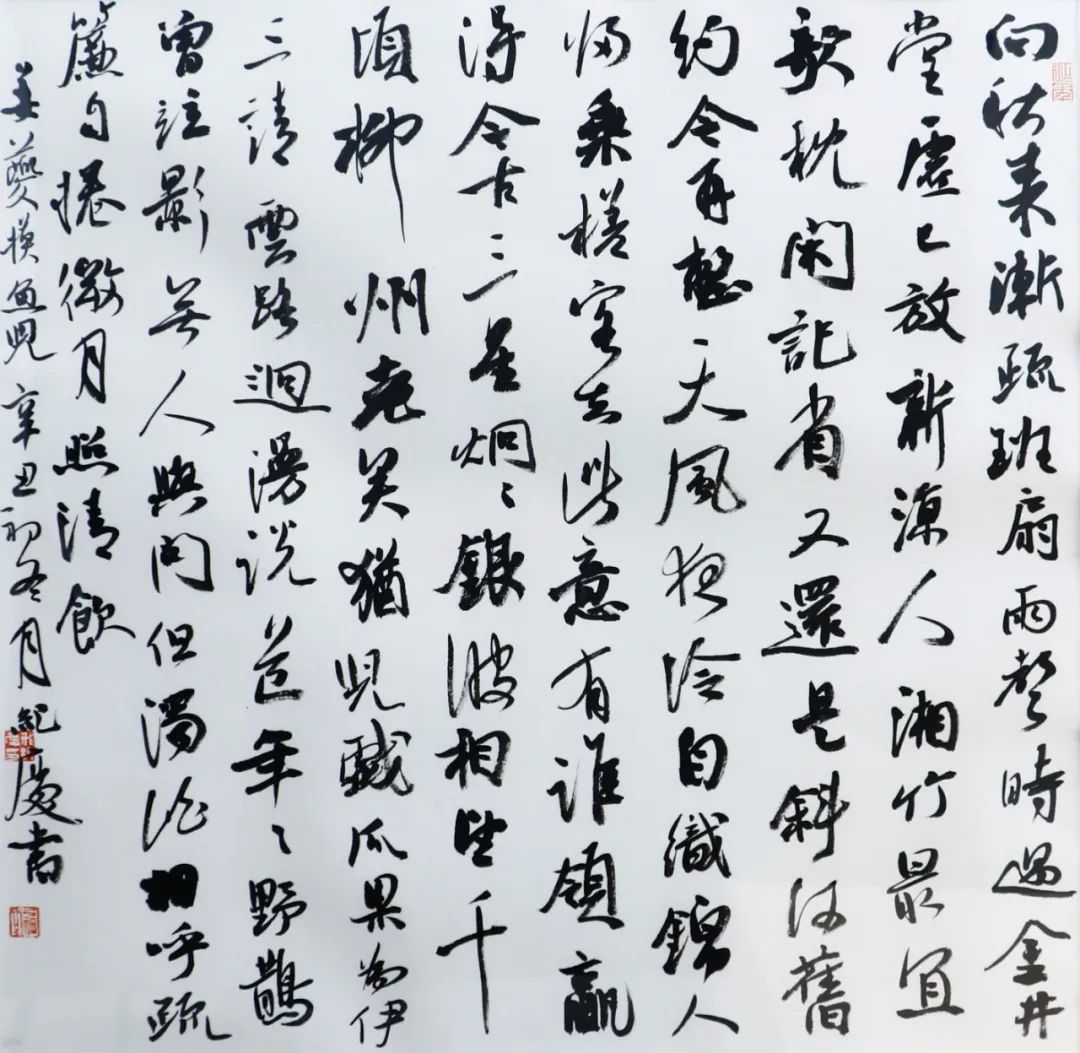 向秋来漸疏班扇雨聲時過金井
堂虛已放新涼入湘竹最宜
欹枕閑記省又還是斜河舊
約今再整天風夜冷自織錦人
歸乘槎客去此意有誰領贏
得今古三星炯々銀波相望千
頃柳州老矣猶兒戲瓜果為伊
三請雲路迥漫説道年々野鵲
曾並影無人與問但濁酒相呼疏
簾自捲微月照清飲
姜夔摸魚兒辛丑初冬月紀慶書